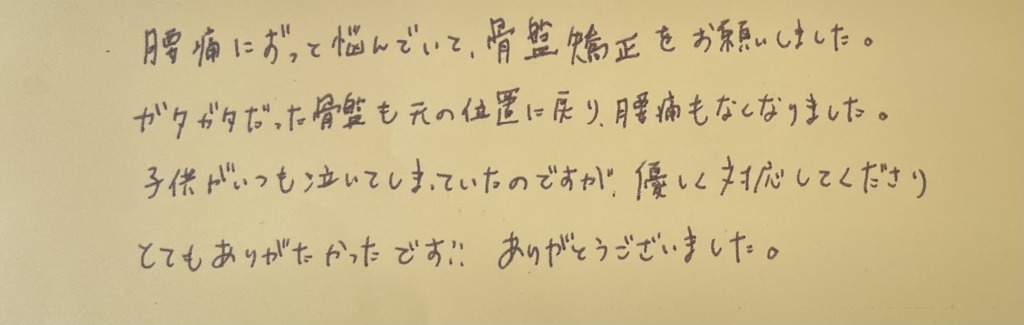 腰痛にずっと悩んでいて、骨盤矯正をお願いしました。
ガタガタだった骨盤も元の位置に戻り、腰痛もなくなりました。
子供がいつも泣いてしまっていたのですが、優しく対応してくださり
とてもありがたかったです!! ありがとうございました。